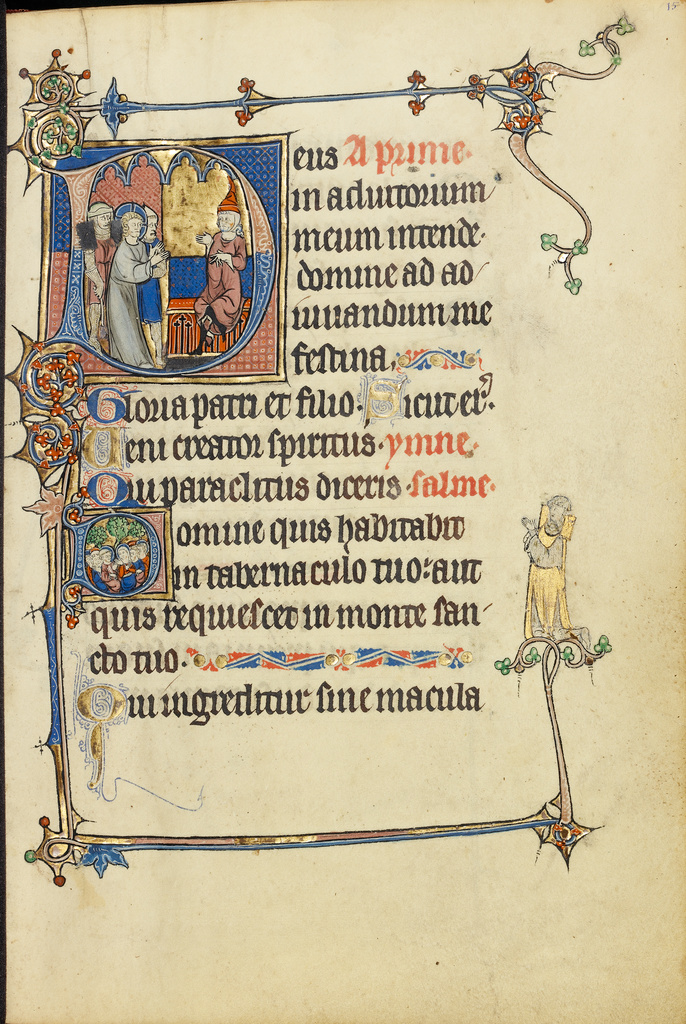 15
Deus A prime·
in adiutorium
meum intende·
domine ad ad
iuuandum me
festina,
Gloria patri et filio· Sicut er̛·
Ueni creator spiritus· ymne·
Qui paraclitus diceris· salme·
Domine quis habitabit
in tabernaculo tuo: aut
quis requiescet in monte san
cto tuo·
Qui ingreditur sine macula